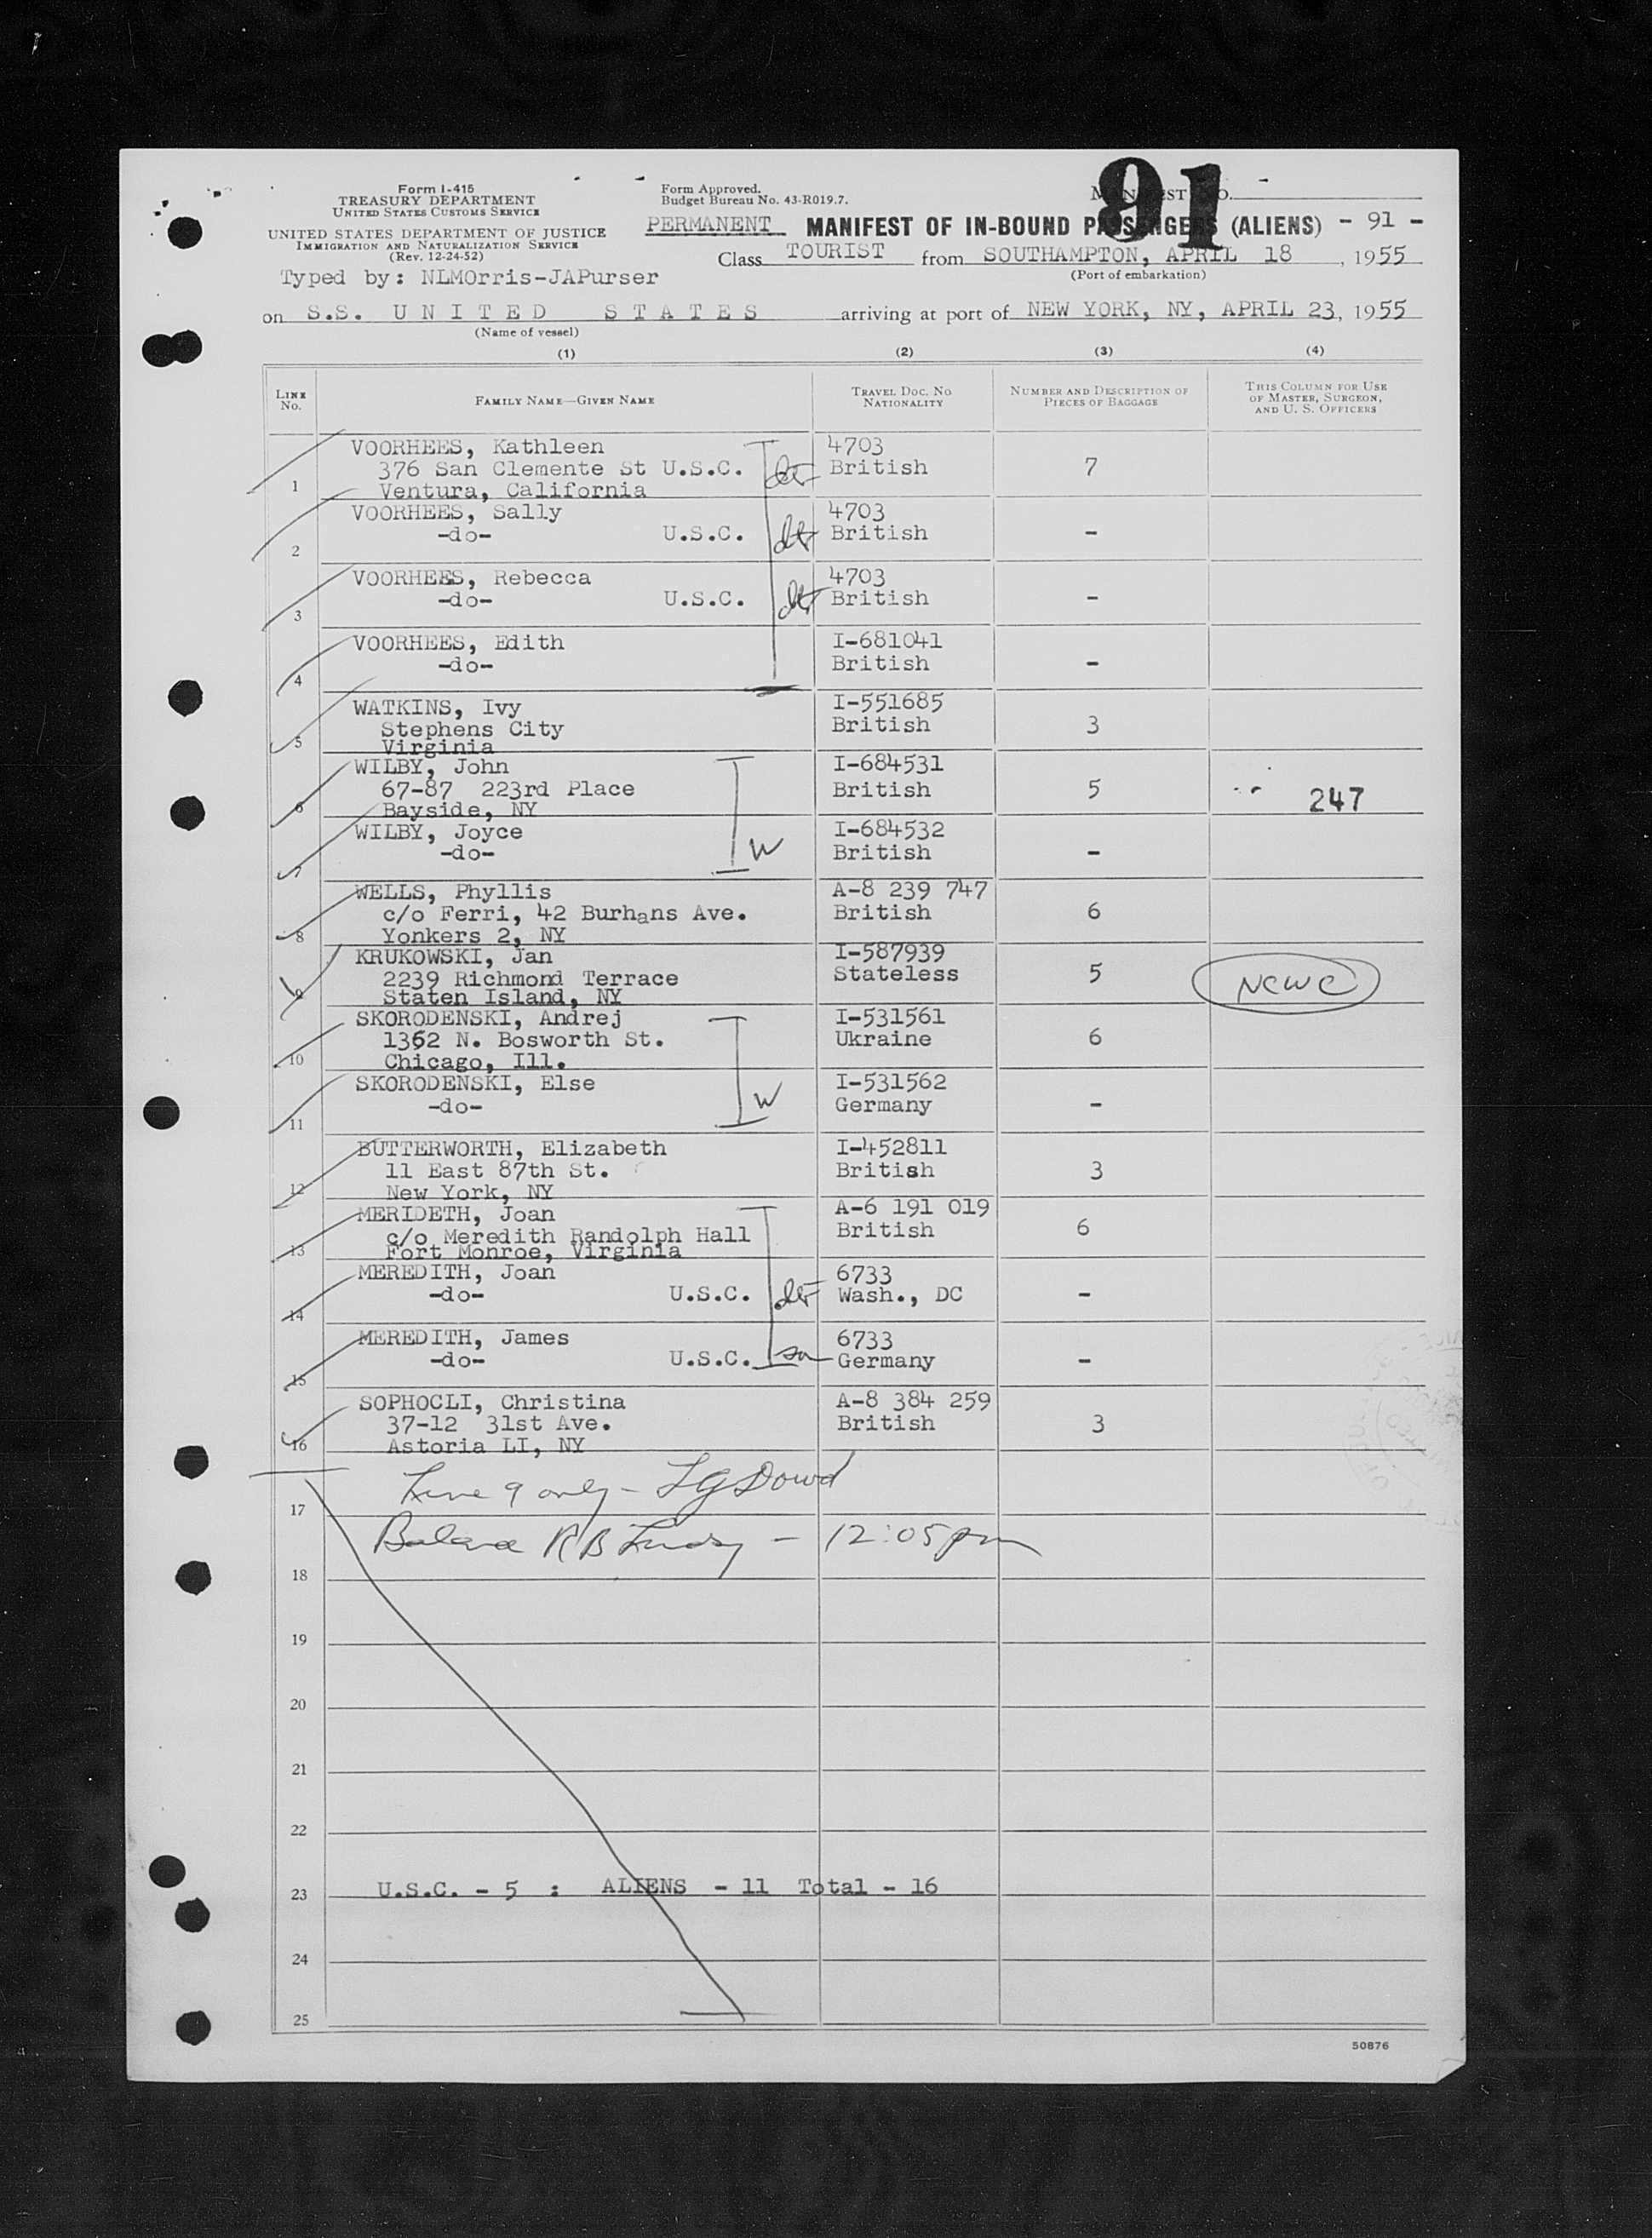 Form I-415
TREASURY DEPARTMENT
UNITED STATES CUSTOMS SERVICE
UNITED STATES DEPARTMENT OF JUSTICE
IMMIGRATION AND NATURALIZATION SERVICE
(Rev. 12-24-52)
Typed by: NLMOrris-JAPurser
Form Approved.
Budget Bureau No. 43-R019.7.
91
PERMANENT MANIFEST OF IN-BOUND PASSENGERS (ALIENS) - 91 -
Class TOURIST from SOUTHAMPTON, APRIL 18, 1955
(Port of embarkation)
on S.S. UNITED STATES arriving at port of NEW YORK, NY, APRIL 23, 1955
(Name of vessel)
(1) (2) (3) (4)
LINE No. FAMILY NAME—GIVEN NAME TRAVEL DOC. NO. NATIONALITY NUMBER AND DESCRIPTION OF PIECES OF BAGGAGE THIS COLUMN FOR USE OF MASTER, SURGEON, AND U. S. OFFICERS
VOORHEES, Kathleen 4703
376 San Clemente St U.S.C. dtr British 7
1 Ventura, California
VOORHEES, Sally 4703
-do- U.S.C. dtr British -
2
VOORHEES, Rebecca 4703
-do- U.S.C. dtr British -
3
VOORHEES, Edith I-681041
-do- British -
4
WATKINS, Ivy I-551685
Stephens City British 3
5 Virginia
WILBY, John I-684531
67-87 223rd Place British 5
6 Bayside, NY 247
WILBY, Joyce I-684532
-do- W British -
7
WELLS, Phyllis A-8 239 747
c/o Ferri, 42 Burhans Ave. British 6
8 Yonkers 2, NY
KRUKOWSKI, Jan I-587939
2239 Richmond Terrace Stateless 5 NCWC
9 Staten Island, NY
SKORODENSKI, Andrej I-531561
1362 N. Bosworth St. Ukraine 6
10 Chicago, Ill.
SKORODENSKI, Else I-531562
-do- W Germany -
11
BUTTERWORTH, Elizabeth I-452811
11 East 87th St. British 3
12 New York, NY
MERIDETH, Joan A-6 191 019
c/o Meredith Randolph Hall British 6
13 Fort Monroe, Virginia
MEREDITH, Joan 6733
-do- U.S.C. dtr Wash., DC -
14
MEREDITH, James 6733
-do- U.S.C. sn Germany -
15
SOPHOCLI, Christina A-8 384 259
37-12 31st Ave. British 3
16 Astoria LI, NY
17 Line 9 only - Dowd
Balance R B - 12:05pm
18
19
20
21
22
23 U.S.C. - 5 : ALIENS - 11 Total - 16
24
25
50876